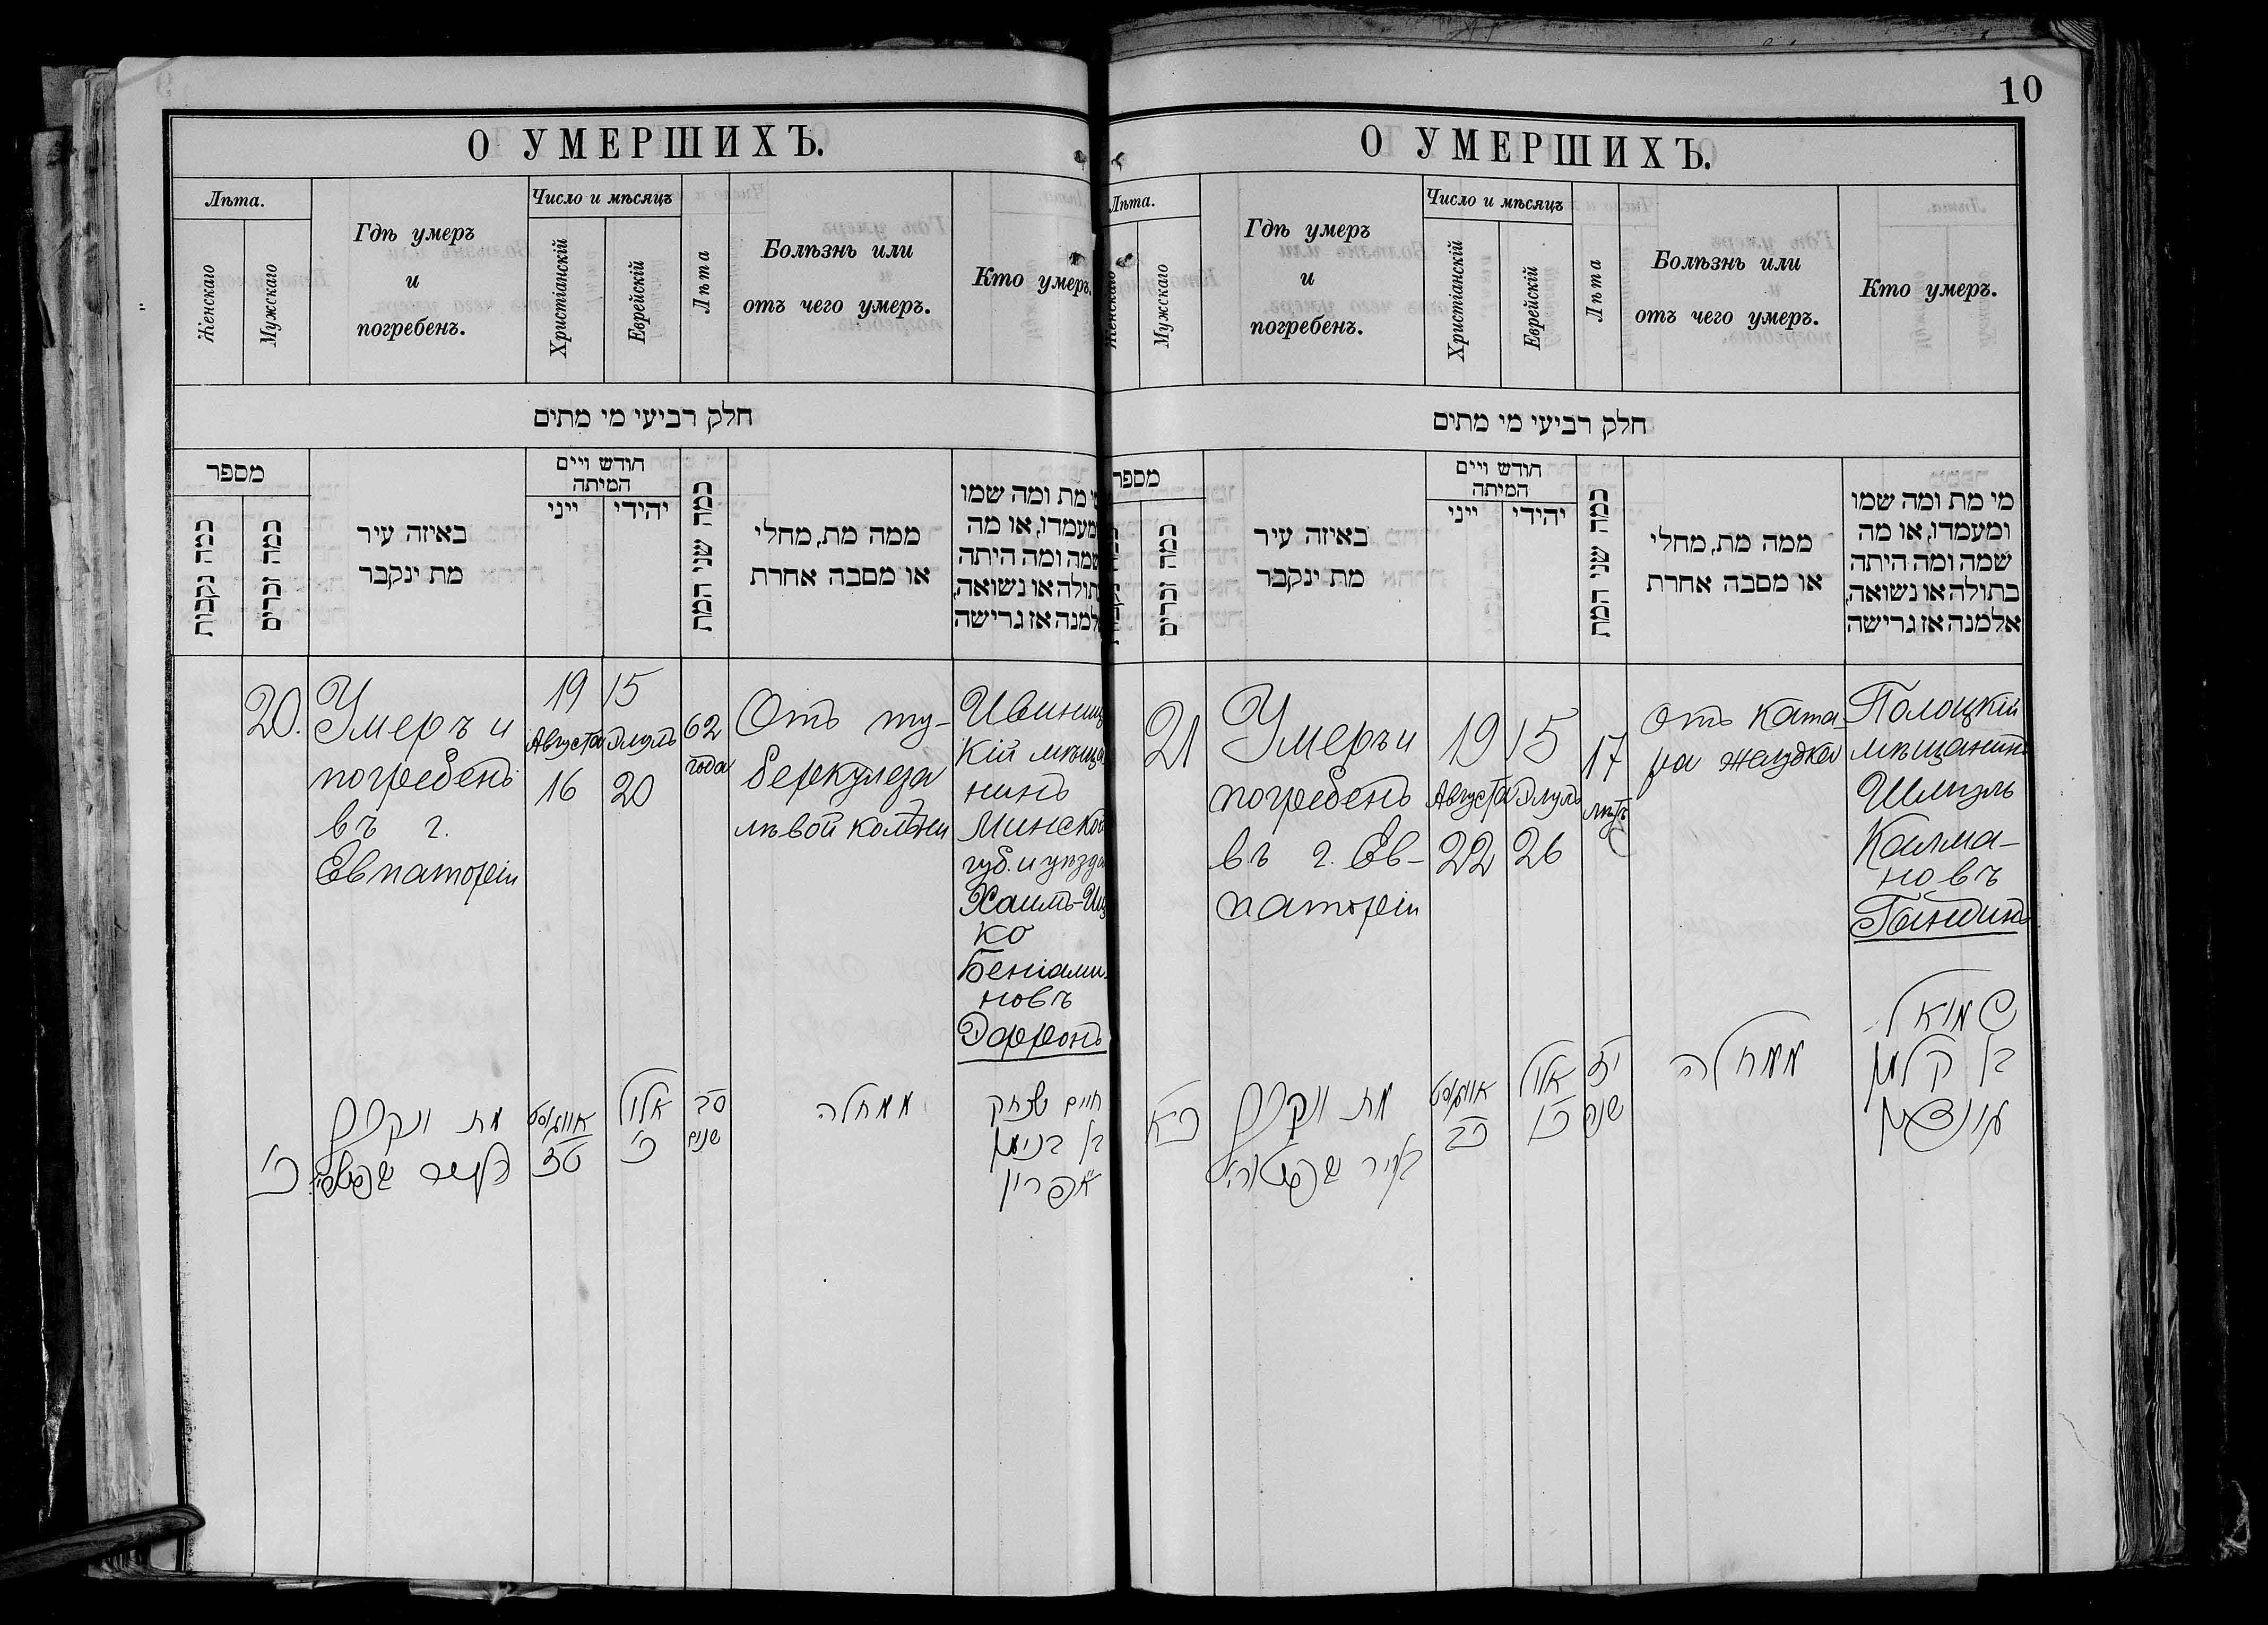 О УМЕРШИХЪ.
Лѣта.
Женскаго
Мужскаго
Гдѣ умеръ
и
погребенъ.
Число и мѣсяцъ
Христіанскій
Еврейскій
Лѣта
Болѣзнь или
отъ чего умеръ.
Кто умеръ.
חלק רביעי מי מתים
מספר
כמה נקבות
כמה זכרים
באיזה עיר
מת ינקבר
חודש ויים
המיתה
ייני
יהודי
כמה שני המת
ממה מת, מחלי
או מסבה אחרת
מת ומה שמו
ומעמדו, או מה
שמה ומה היתה
או נשואה,
אז גרישה
20.
Умеръ и
погребенъ
въ г.
Евпаторіи
19 15
Августа Элулъ
16 20
62
года
Отъ ту-
беркулеза
лѣвой колѣни
Ивениц
кій мѣща
нинъ
Минской
губ. и уѣзда
Хаимъ-Иц
ко
Беніами-
новъ
Эфронъ
כ׳
מת ונקבר
אווגוסט
טז
אלול
כ׳
סב
שנים
ממחלה
חיים יצחק
בן בנימן
אפרון
10
О УМЕРШИХЪ.
Лѣта.
Женскаго
Мужскаго
Гдѣ умеръ
и
погребенъ.
Число и мѣсяцъ
Христіанскій
Еврейскій
Лѣта
Болѣзнь или
отъ чего умеръ.
Кто умеръ.
חלק רביעי מי מתים
מספר
כמה זכרים
באיזה עיר
מת ינקבר
חודש ויים
המיתה
ייני
יהודי
כמה שני המת
ממה מת, מחלי
או מסבה אחרת
מי מת ומה שמו
ומעמדו, או מה
שמה ומה היתה
בתולה או נשואה,
אלמנה אז גרישה
21
Умеръ и
погребенъ
въ г. Ев-
паторіи
19 15
Августа Элулъ
22 26
17
лѣтъ
Отъ ката-
ра желудка
Полоцкій
мѣщанинъ
Шмуль
Калма-
новъ
כא
מת ונקבר
בעיר
אווגוסט
כב
אלול
כו
יז
שנה
ממחלה
שמואל
בן קלמן